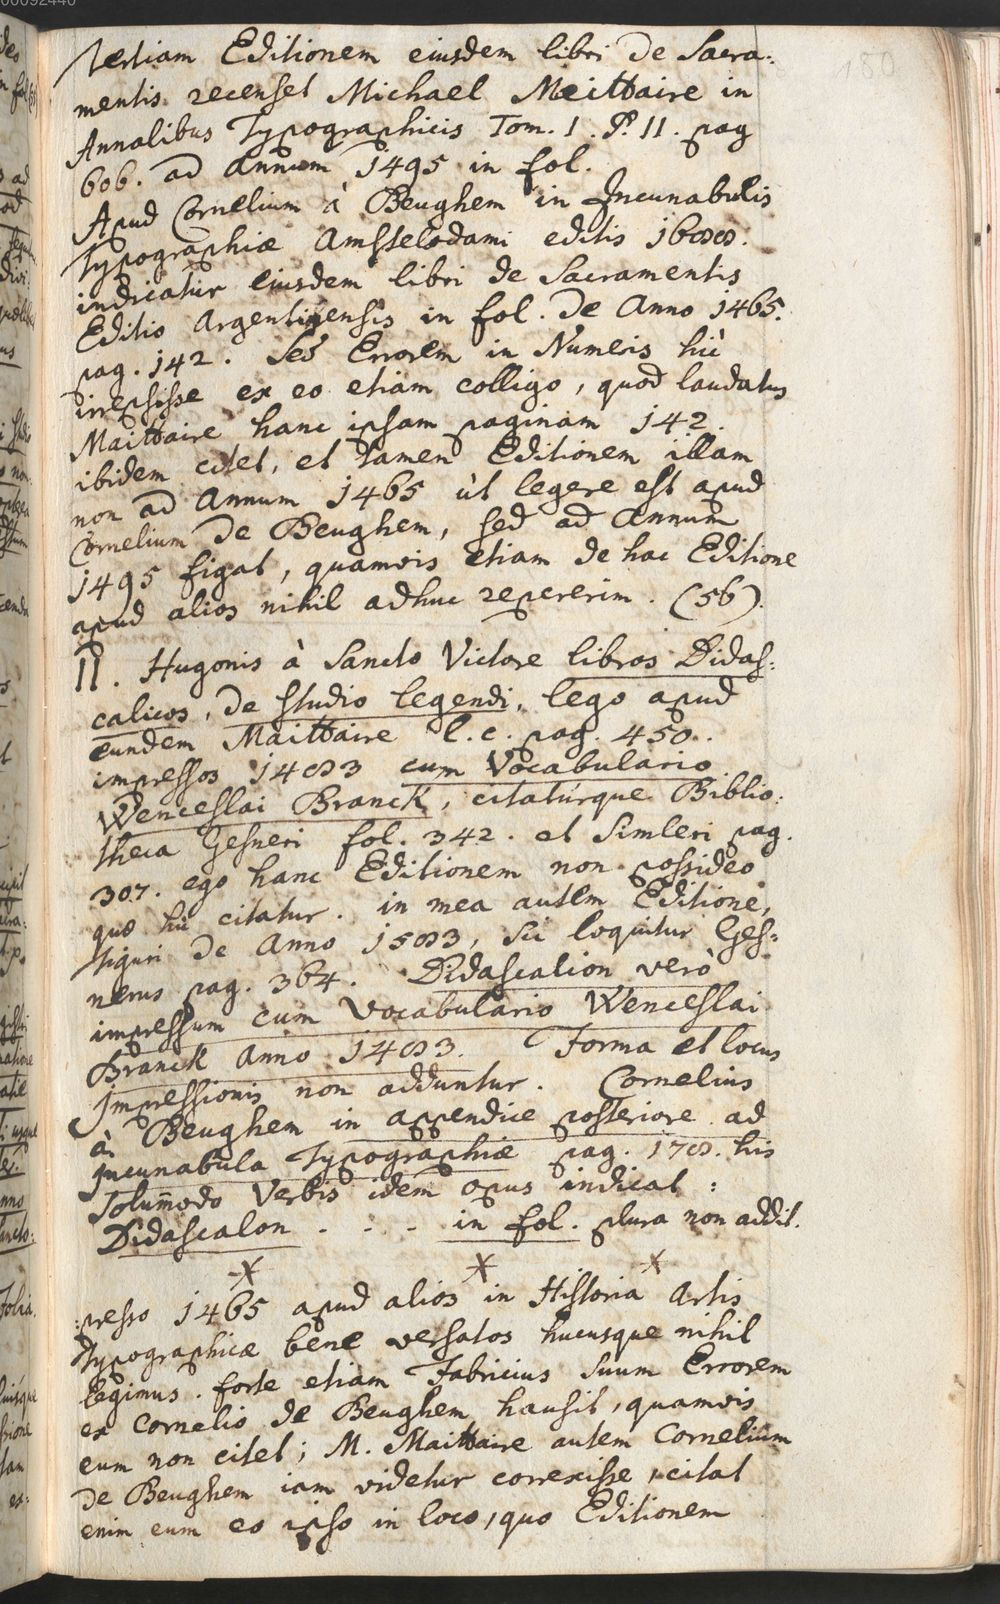 150
tertiam Editionem eiusdem libri de Sacra:
mentis recenset Michael Meittaire in
Annalibus Typographicis Tom. I. P. II. pag
606. ad Annum 1495 in fol.
Apud Cornelium à Beughem in Incunabulis
Typographiæ Amstelodami editis 1688.
indicatur eiusdem libri de Sacramentis
Editio Argentinensis in fol. de Anno 1465.
pag. 142. Sed Errorem in Numeris hic
irrepsisse ex eo etiam colligo, quod laudatus
Maittaire hanc ipsam paginam 142.
ibidem citet, et tamen Editionem illam
non ad Annum 1465 ut legere est apud
Cornelium de Beughem, sed ad Annum
1495 figat, quamvis etiam de hac Editione
apud alios nihil adhuc repererim. (56).
II. Hugonis à Sancto Victore libros Didas:
calicos, de studio legendi, lego apud
eundem Maittaire l. c. pag. 450.
impressos 1483 cum Vocabulario
Wenceslai Branck, citaturque Biblio:
theca Gesneri fol. 342. et Simleri pag.
307. ego hanc Editionem non possideo
quæ hic citatur. in mea autem Editione,
Tiguri de Anno 1583, sic loquitur Ges:
nerus pag. 364. Didascalion verò
impressum cum Vocabulario Wenceslai
Branck anno 1483. Forma et locus
Impressionis non adduntur. Cornelius
à Beughem in appendice posteriore ad
Incunabula Typographiæ pag. 178. his
solum̃odo Verbis idem opus indicat:
Didascalon . - . - in fol. plura non addit.
* * *
:presso 1465 apud alios in Historia Artis
Typographicæ bene versatos hucusque nihil
legimus. forte etiam Fabricius suum Errorem
ex Cornelio de Beughem hausit, quamvis
eum non citet; M. Maittaire autem Cornelium
de Beughem iam videtur correxisse, citat
enim eum eo ipso in loco, quo Editionem